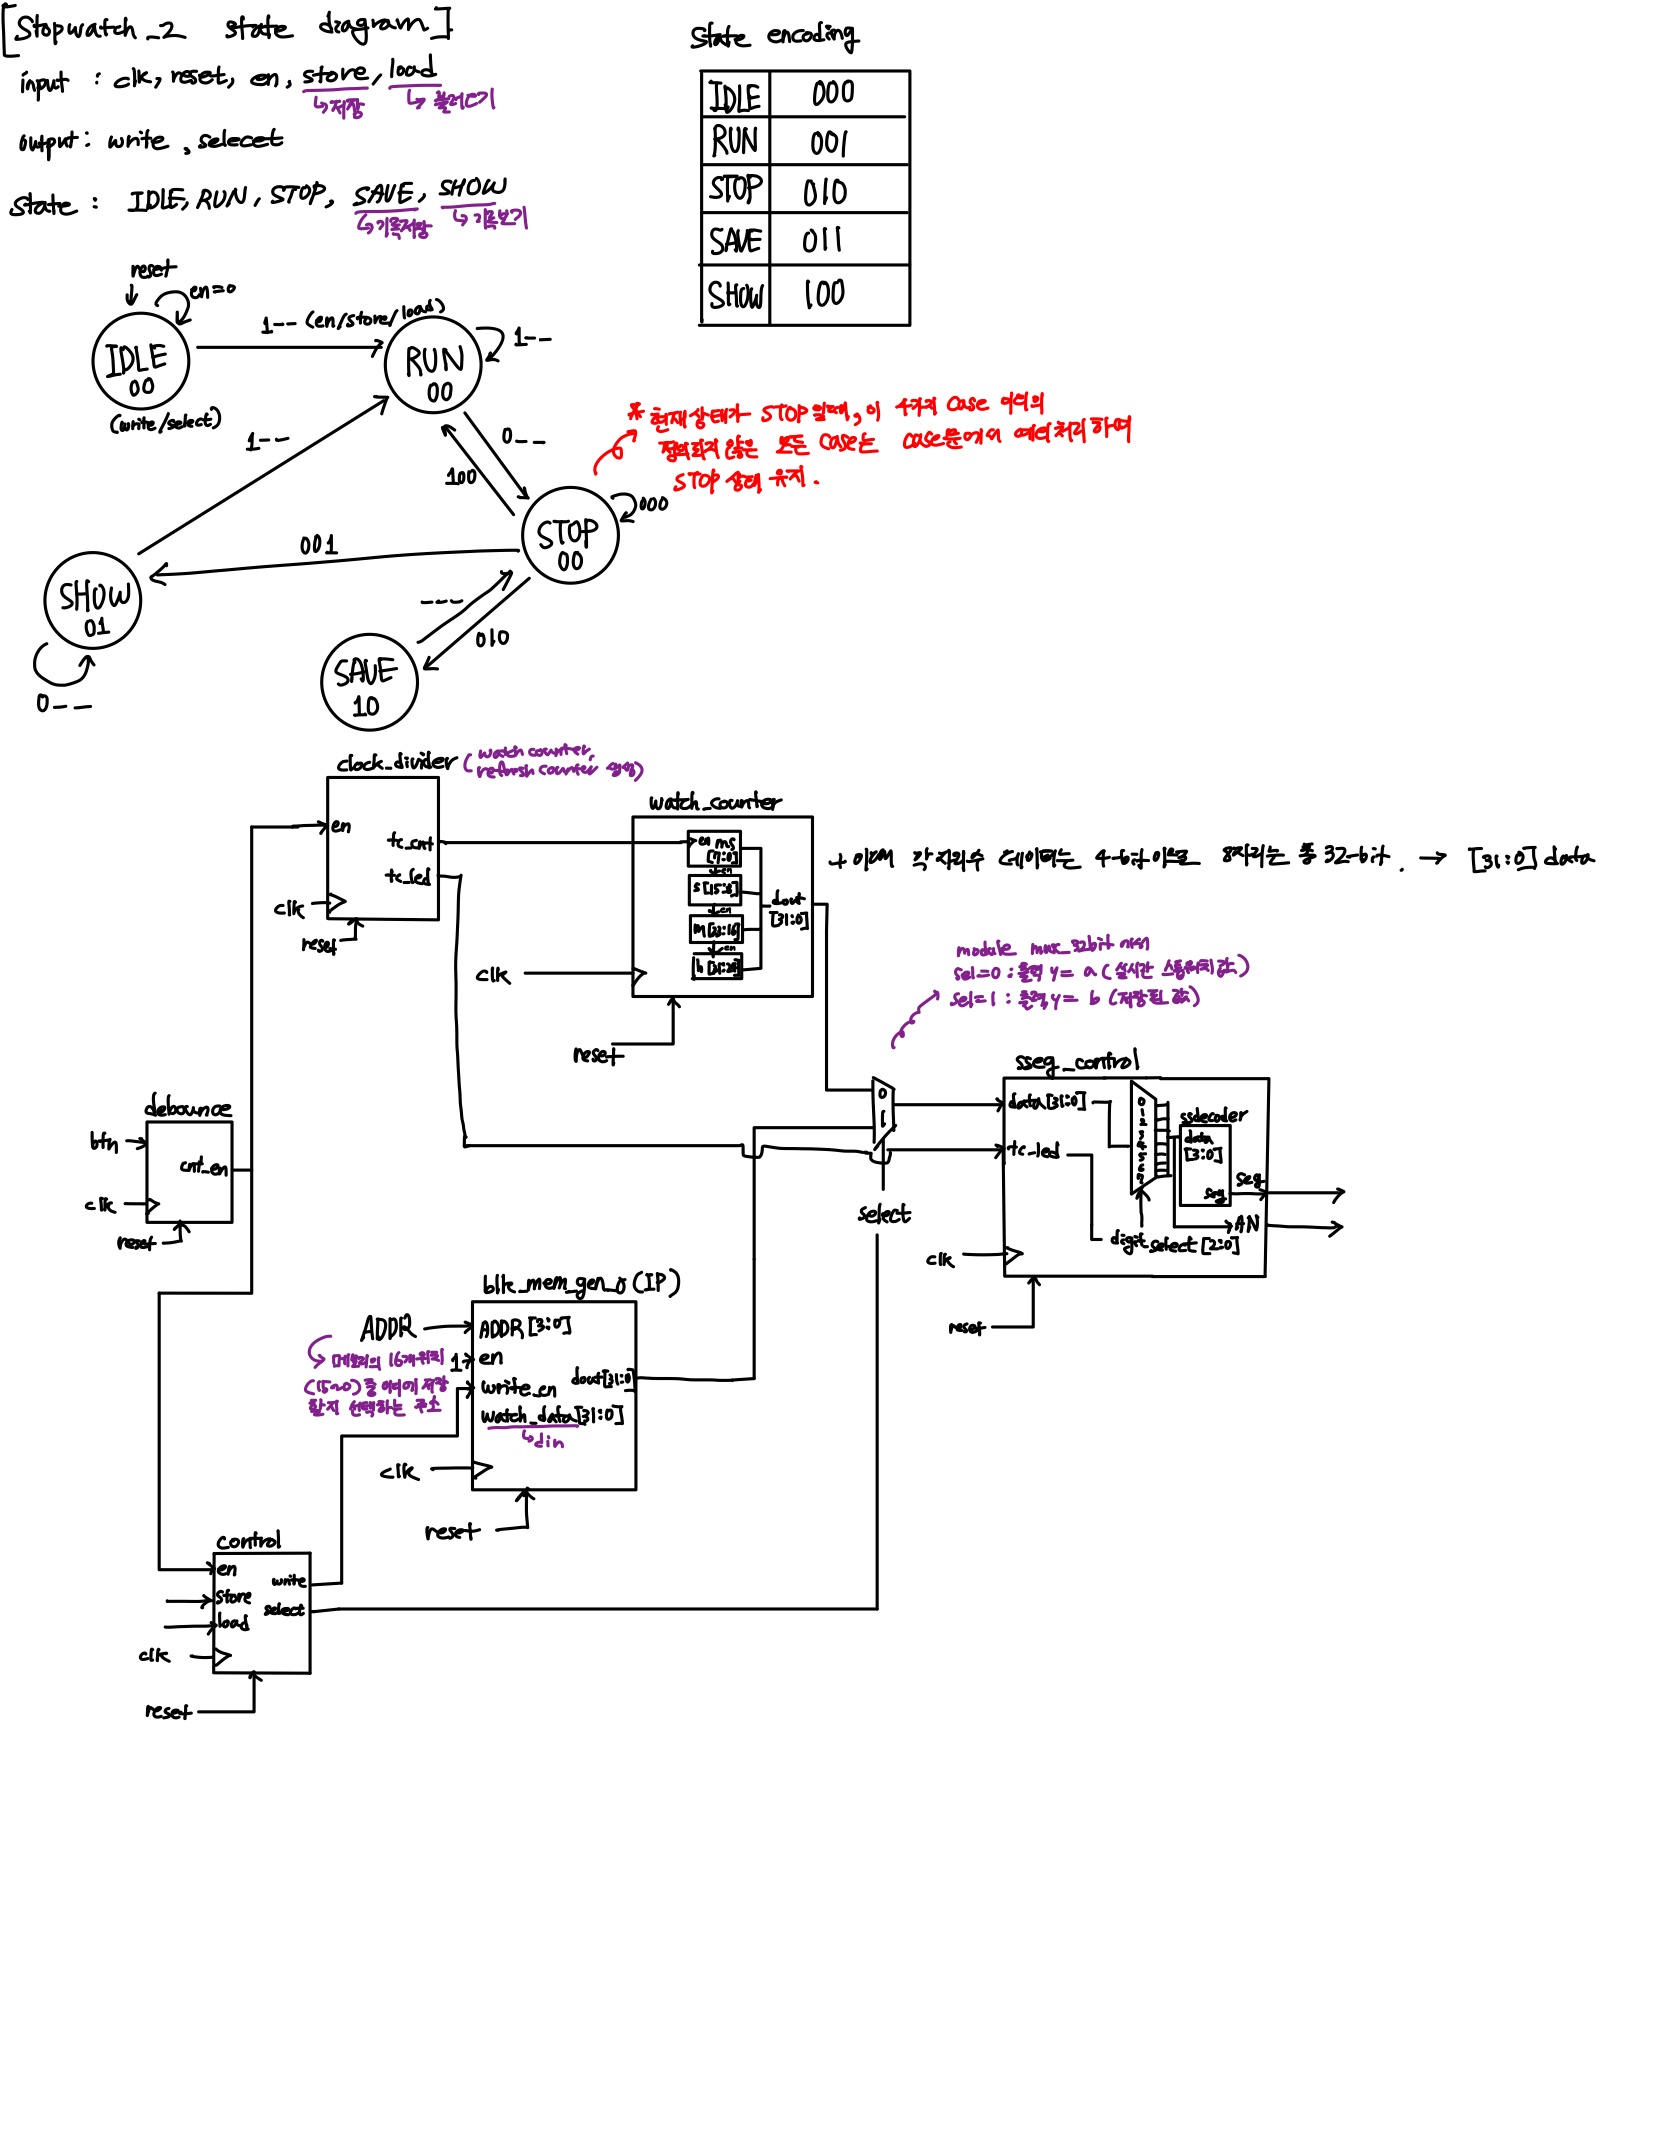 [Stopwatch_2 state diagram]
input : clk, reset, en, store, load
↳저장 ↳ 불러오기
output : write, selecet
State : IDLE, RUN, STOP, SAVE, SHOW
↳기록저장 ↳ 기록보기
State encoding
IDLE 000
RUN 001
STOP 010
SAVE 011
SHOW 100
reset
en=0
IDLE
00
(write/select)
1-- (en/store/load)
RUN
00
1--
1--
0--
100
* 현재상태가 STOP일때, 이 4가지 Case 이외의
정의되지 않은 모든 Case는 case문에서 예외처리하여
STOP 상태 유지.
STOP
00
000
001
SHOW
01
0--
---
010
SAVE
10
clock_divider (watch counter,
refresh counter 생성)
en
tc_cnt
tc_led
clk
reset
watch_counter
en ms
[7:0]
en
s [15:8]
en
m[23:16]
en
h [31:24]
dout
[31:0]
clk
reset
+ 이때 각 자리수 데이터는 4-bit이므로 8자리는 총 32-bit. → [31:0] data
module mux_32bit 에서
sel=0 : 출력 y= a (실시간 스톱워치 값)
sel=1 : 출력 y= b (저장된 값)
0
1
select
sseg_control
data[31:0]
tc_led
0
1
2
3
4
5
6
7
ssdecoder
data
[3:0]
seg
seg
AN
digit select [2:0]
clk
reset
debounce
btn
cnt_en
clk
reset
blk_mem_gen_0 (IP)
ADDR
ADDR [3:0]
↳ 메모리의 16개 위치
(15~0) 중 어디에 저장
할지 선택하는 주소
1
en
write_en
dout[31:0]
watch_data[31:0]
↳din
clk
reset
control
en
store
load
write
select
clk
reset